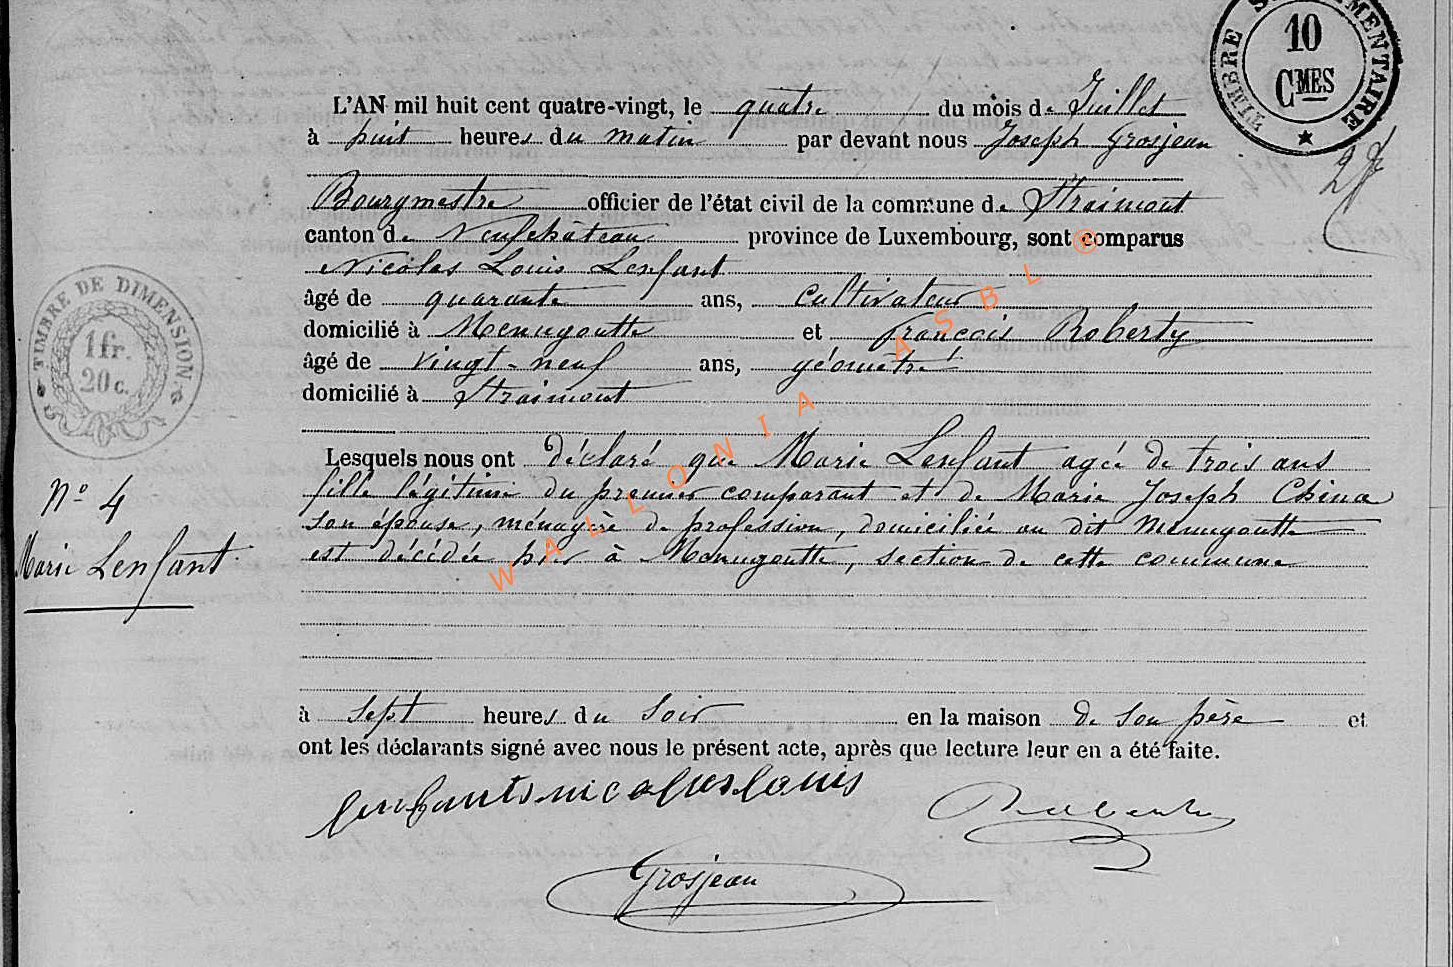 TIMBRE SUPPLÉMENTAIRE
10
CMES
L'AN mil huit cent quatre-vingt, le quatre du mois de Juillet
à huit heures du matin par devant nous Joseph Grosjean
Bourgmestre officier de l'état civil de la commune de Straimont
canton de Neufchâteau province de Luxembourg, sont comparus
Nicolas Louis Lenfant
âgé de quarante ans, cultivateur
domicilié à Menugoutte et François Roberty
âgé de vingt-neuf ans, géomètre
domicilié à Straimont
TIMBRE DE DIMENSION
1 fr.
20 c.
Lesquels nous ont déclaré que Marie Lenfant agée de trois ans
fille légitime du premier comparant et de Marie Joseph China
son épouse, ménagère de profession, domiciliée au dit Menugoutte
est décédée hier à Menugoutte, section de cette commune
No 4
Marie Lenfant
à sept heures du soir en la maison de son père et
ont les déclarants signé avec nous le présent acte, après que lecture leur en a été faite.
Grosjean
WALLONIA ASBL ®